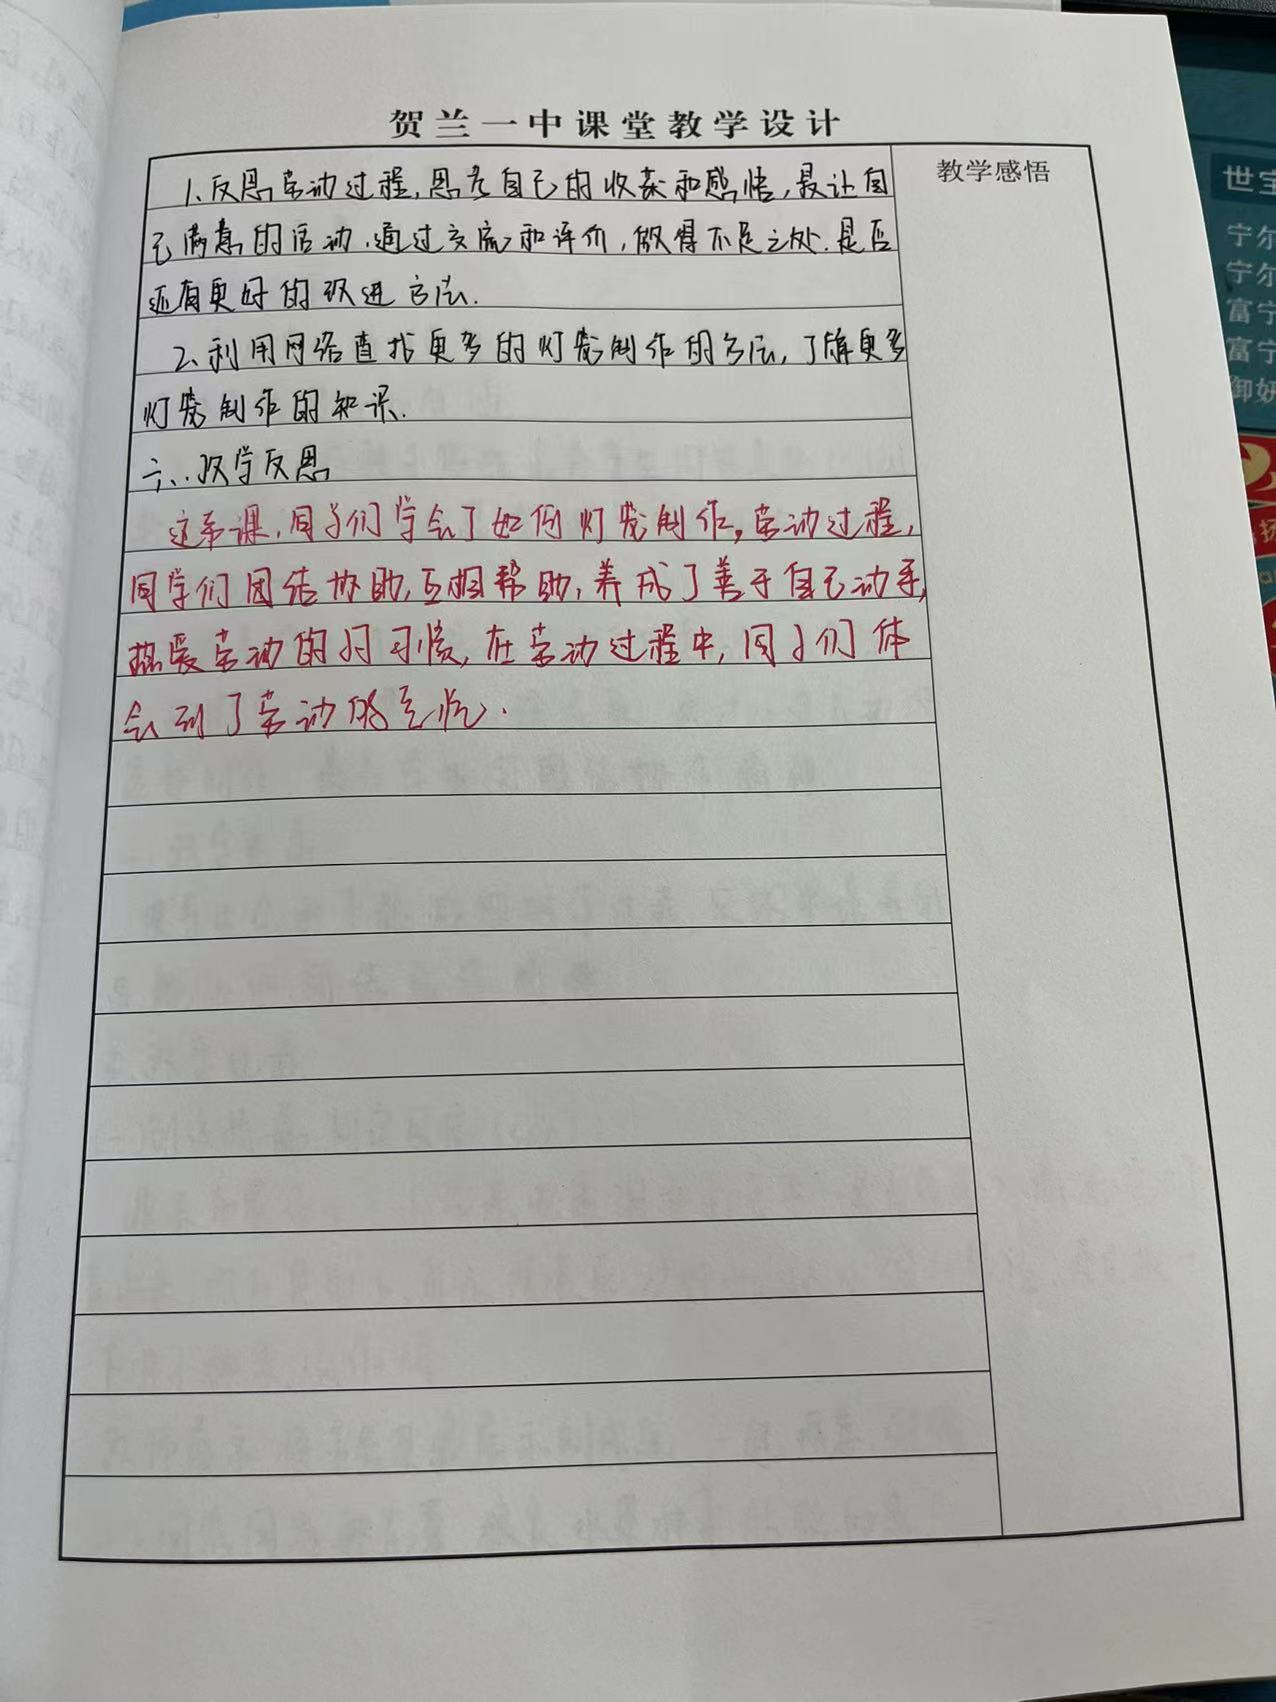 贺兰一中课堂教学设计
教学感悟
1、反思劳动过程,思考自己的收获和感悟,最让自
己满意的活动.通过交流和评价,做得不足之处.是否
还有更好的改进方法.
2、利用网络查找更多的灯笼制作的方法,了解更多
灯笼制作的知识.
六、教学反思
这节课,同学们学会了如何灯笼制作,劳动过程,
同学们团结协助,互相帮助,养成了善于自己动手,
热爱劳动的好习惯,在劳动过程中,同学们体
会到了劳动的
世宝
宁尔
宁尔
富宁
富宁
御妍
扬